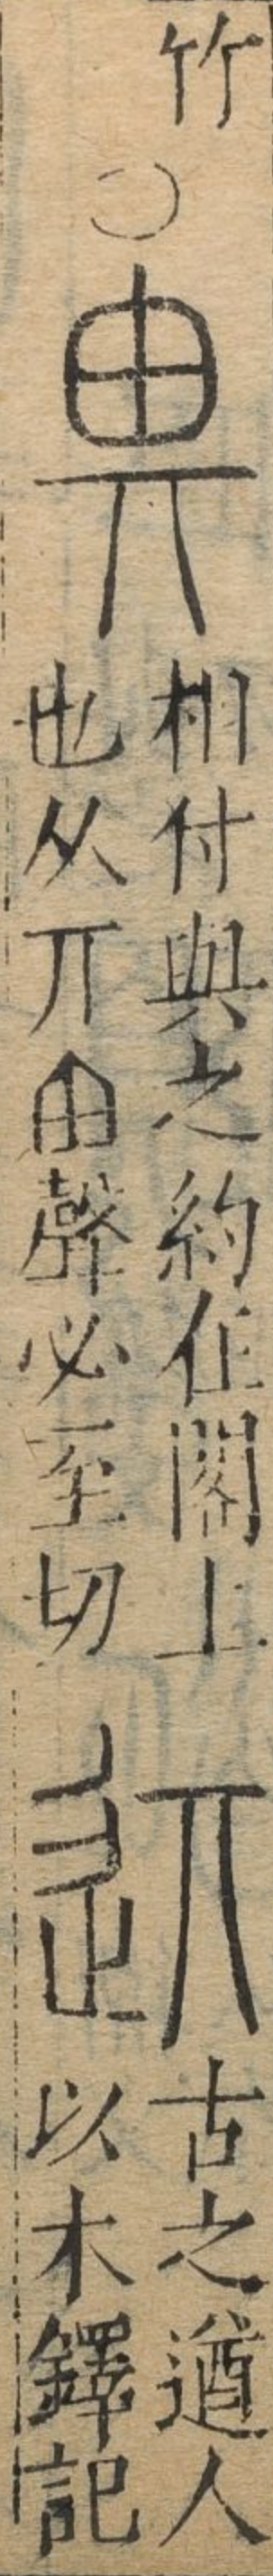 竹
○
畀
相付與之約在閣上
也从丌甶聲必至切
䢋
古之遒人
以木鐸記